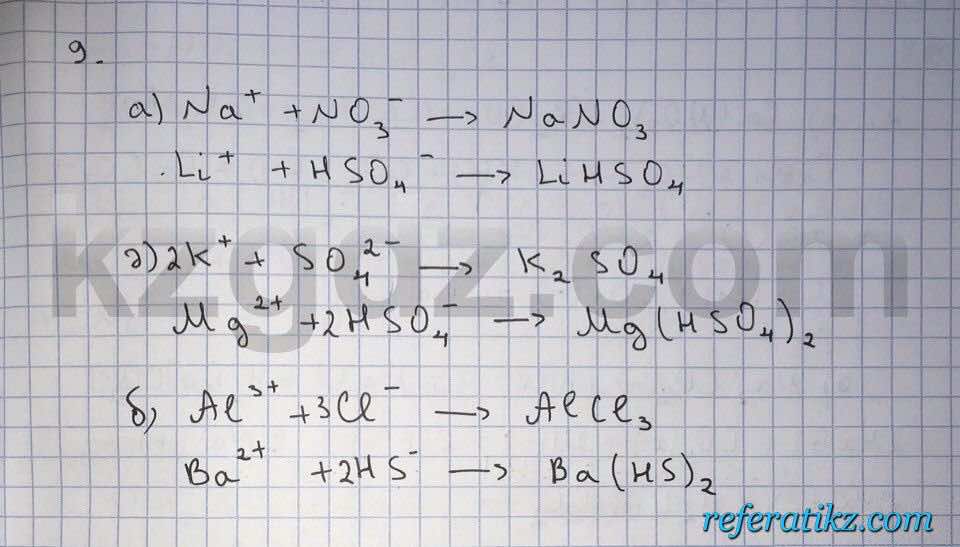 9.
а) Na⁺ + NO₃⁻ → NaNO₃
Li⁺ + HSO₄⁻ → LiHSO₄
г) 2K⁺ + SO₄²⁻ → K₂SO₄
Mg²⁺ + 2HSO₄⁻ → Mg(HSO₄)₂
б) Al³⁺ + 3Cl⁻ → AlCl₃
Ba²⁺ + 2HS⁻ → Ba(HS)₂
kzgdz.com
referatikz.com